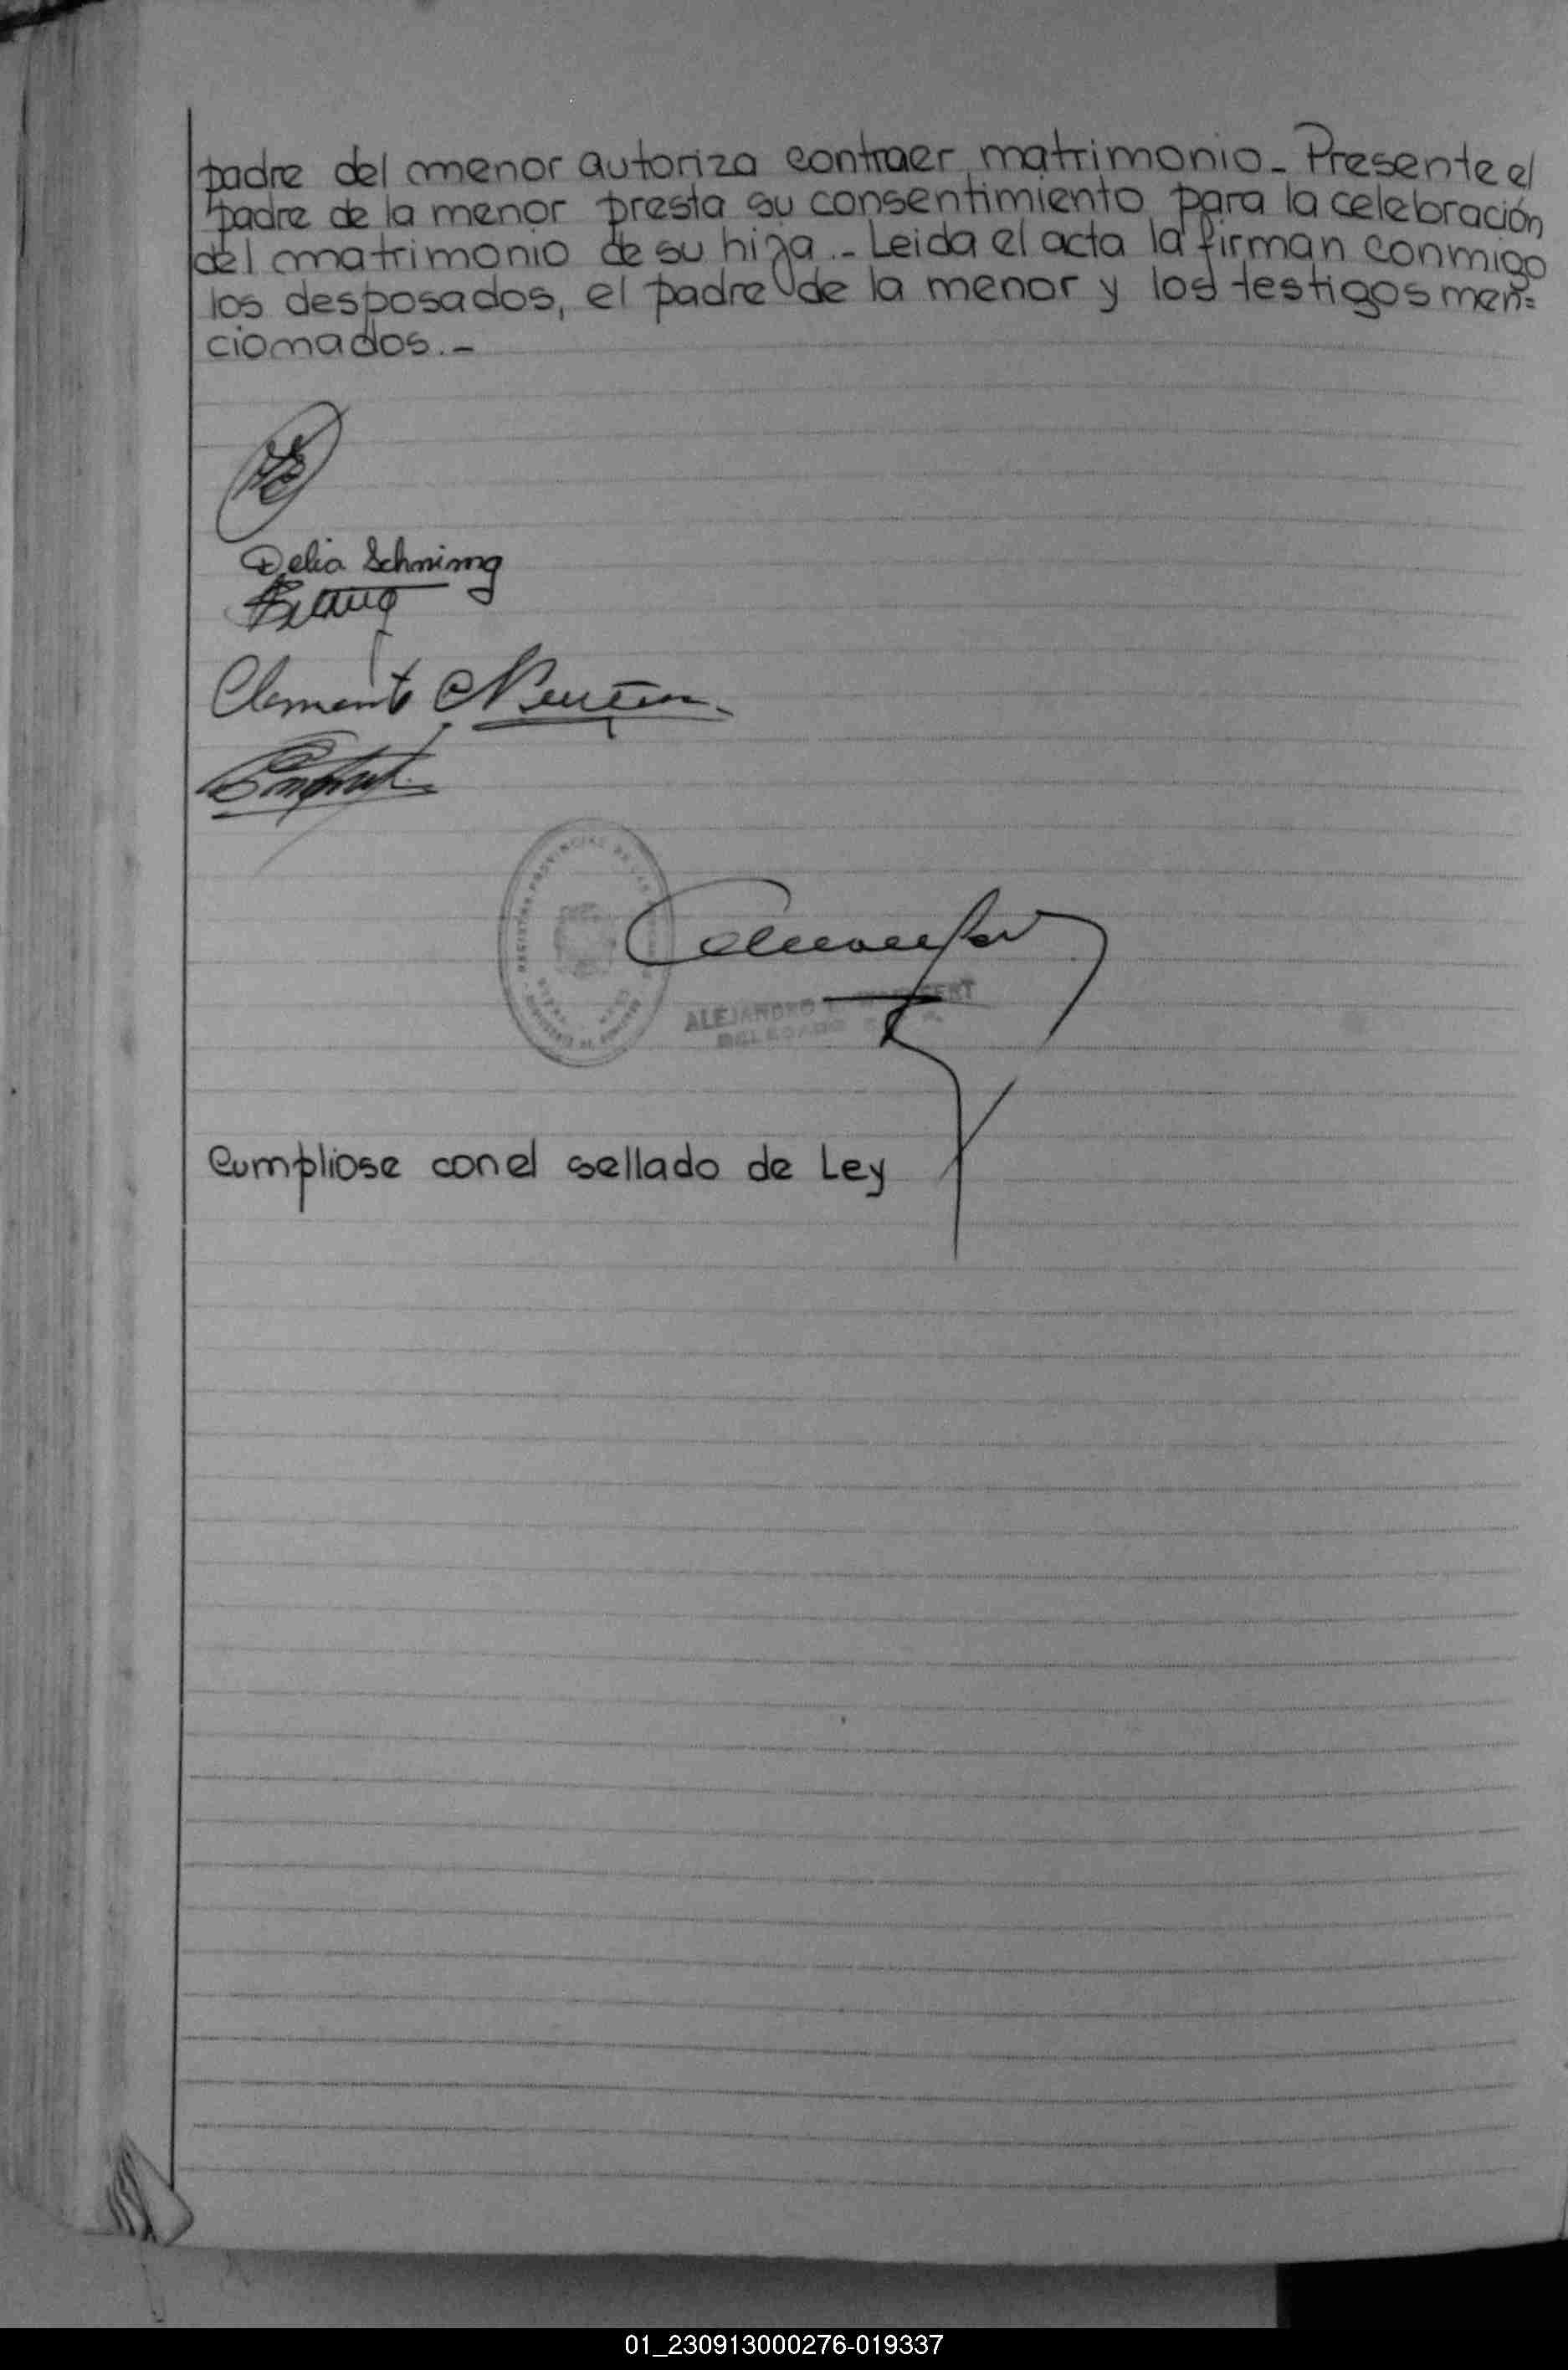 padre del menor autoriza contraer matrimonio_ Presente el
padre de la menor presta su consentimiento para la celebración
del matrimonio de su hija._ Leida el acta la firman conmigo
los desposados, el padre de la menor y los testigos men=
cionados._
Delia Schning
Clemente
ALEJANDRO
DELEGADO
Cumpliose con el sellado de Ley
01_230913000276-019337